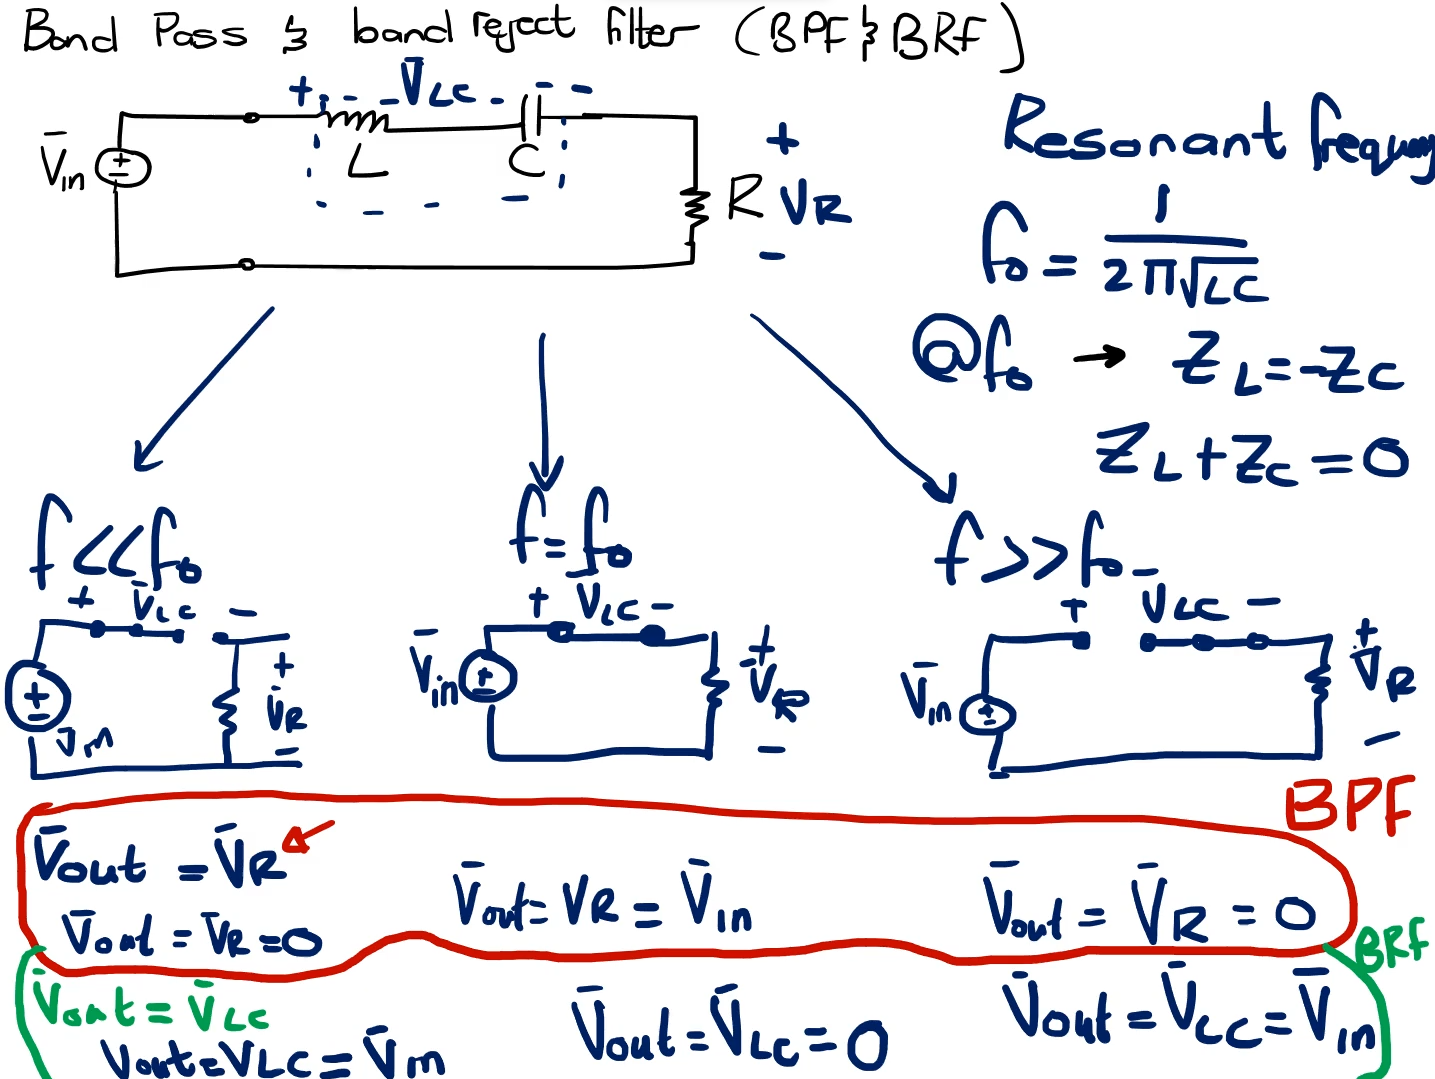 Band Pass & band reject filter (BPF & BRF)
+ V̄LC -
V̄in
+
-
L
C
R
+
VR
-
Resonant frequency
f0 = 1 / 2π√LC
@f0 → ZL = -ZC
ZL + ZC = 0
f << f0
+ V̄LC -
+
-
V̄in
+
V̄R
-
f = f0
+ V̄LC -
V̄in
+
-
+
V̄R
-
f >> f0
+ V̄LC -
V̄in
+
-
+
V̄R
-
BPF
V̄out = V̄R
V̄out = V̄R = 0
V̄out = VR = V̄in
V̄out = V̄R = 0
BRF
V̄out = V̄LC
Vout = VLC = V̄in
V̄out = V̄LC = 0
V̄out = V̄LC = V̄in